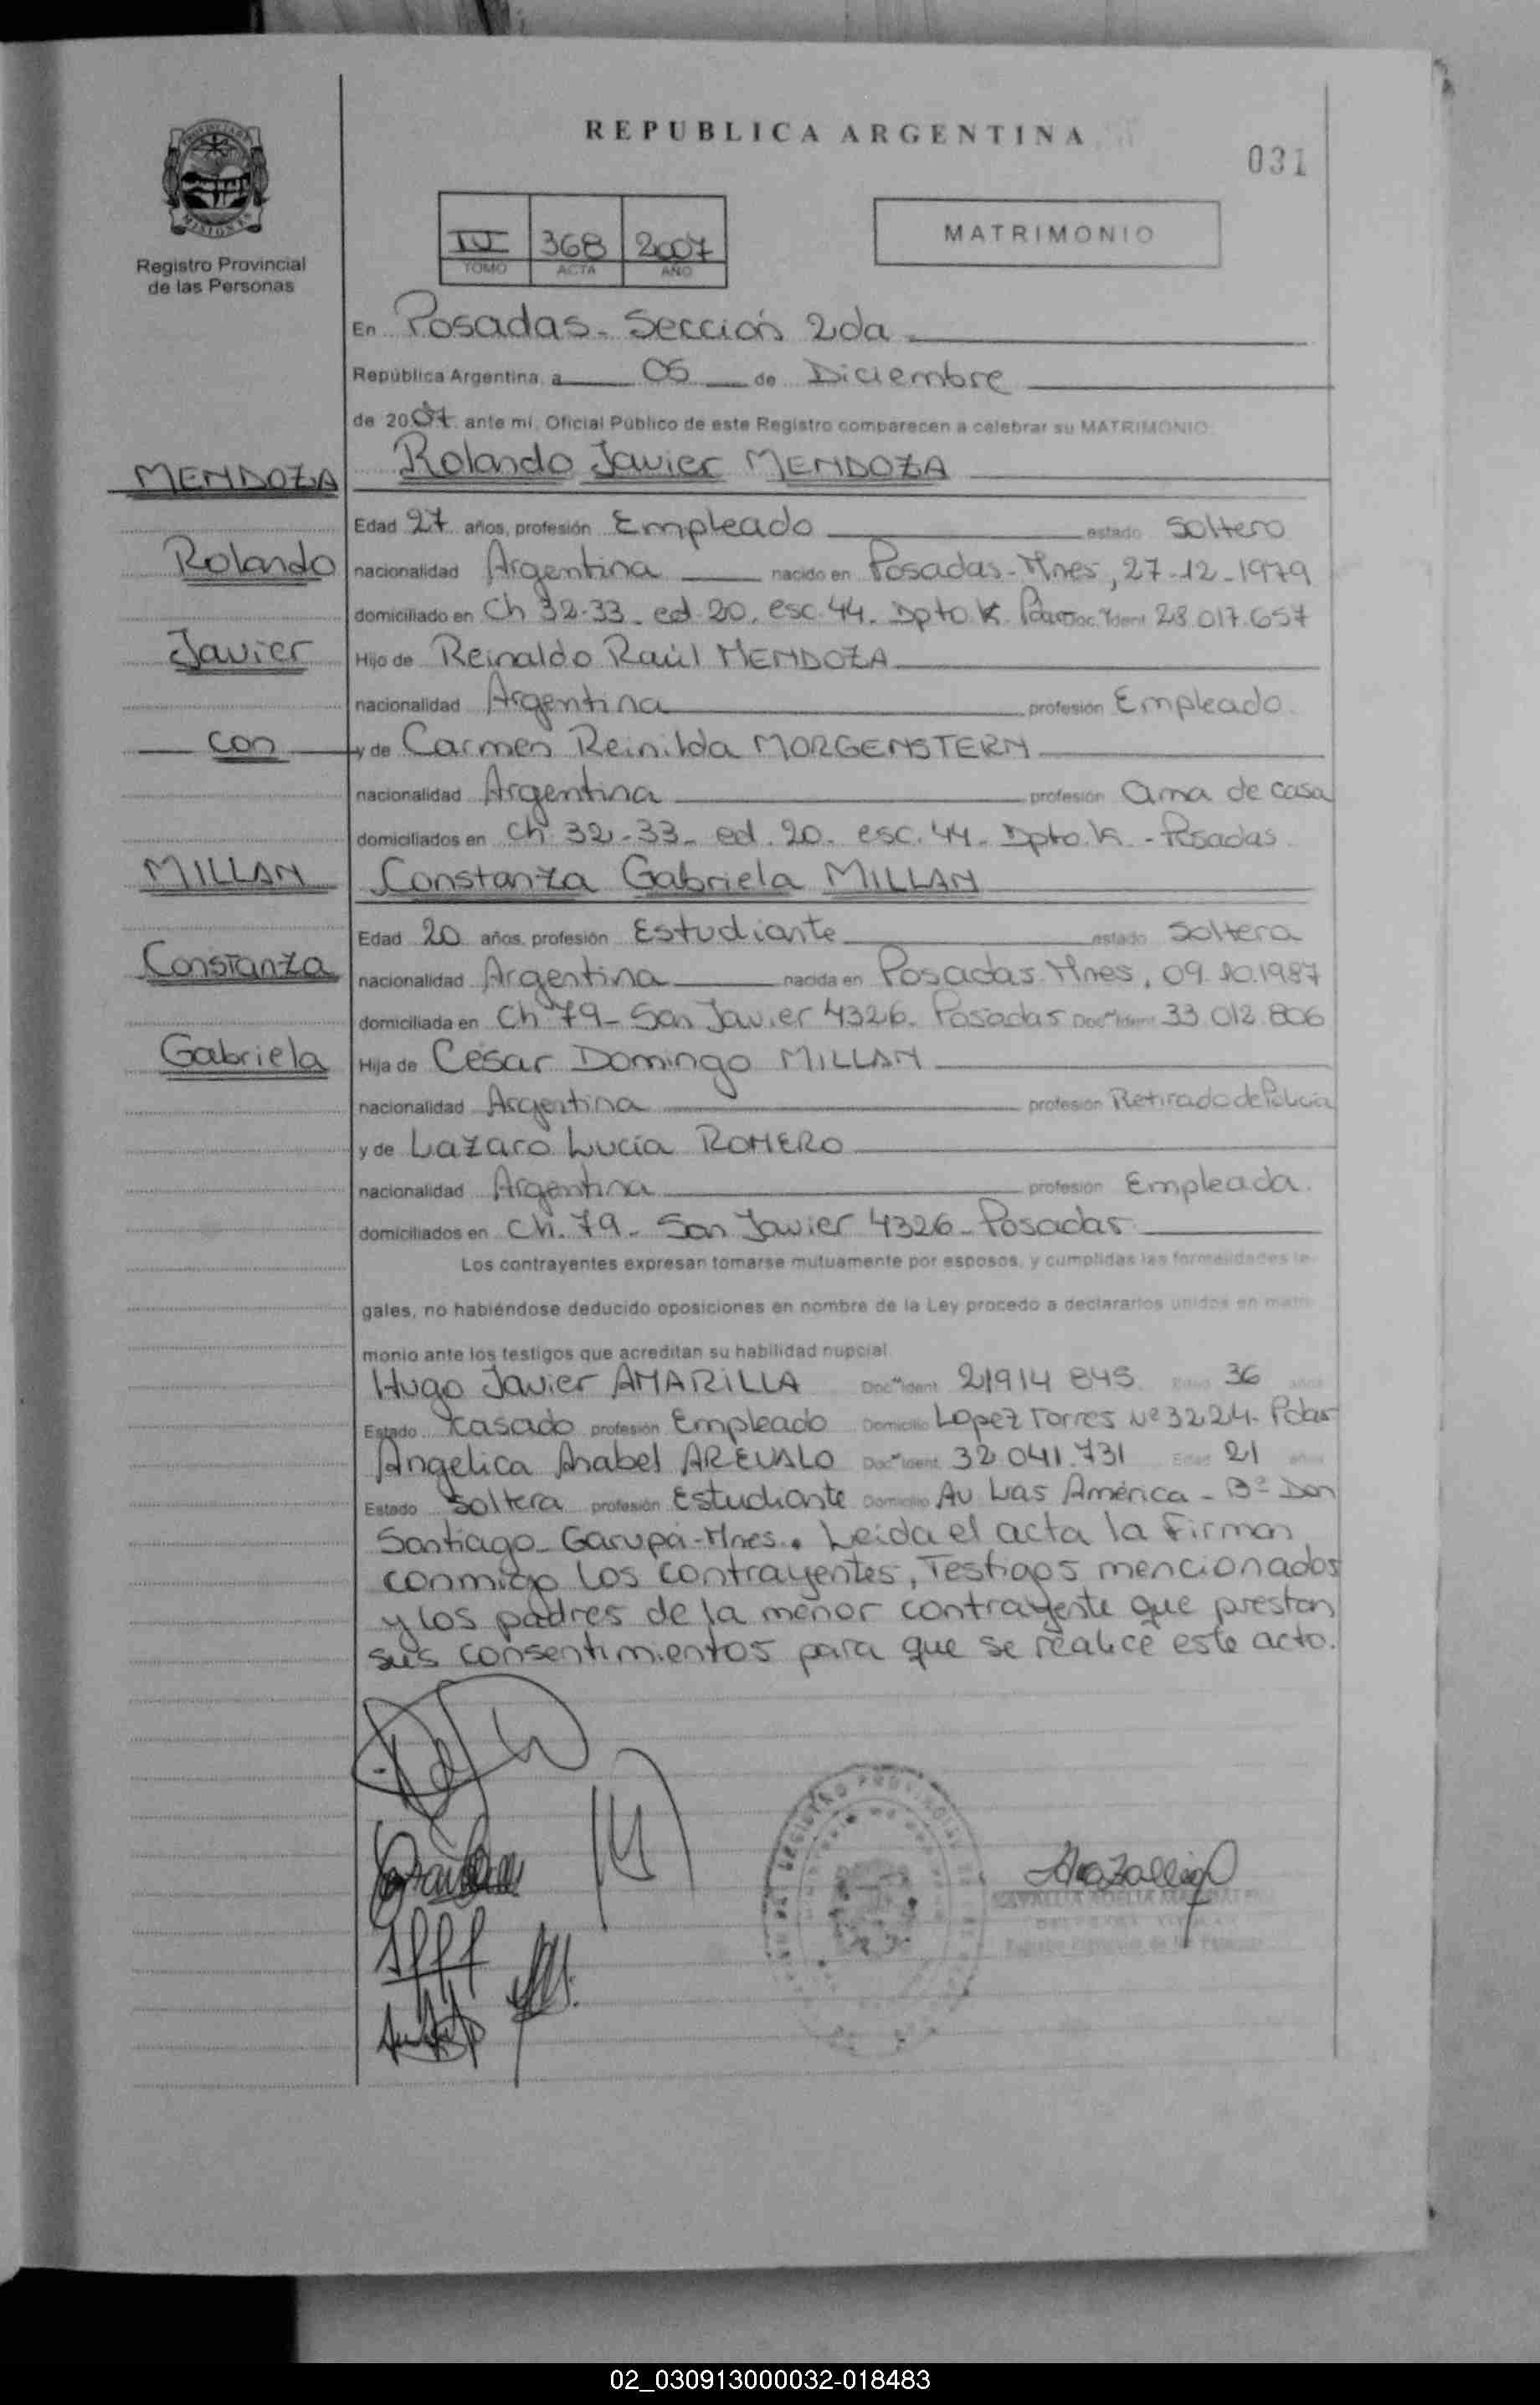 REPUBLICA ARGENTINA
031
PROVINCIA DE
MISIONES
Registro Provincial
de las Personas
IV 368 2007
TOMO ACTA AÑO
MATRIMONIO
En Posadas - Sección 2da
República Argentina, a 05 de Diciembre
de 2007 ante mi, Oficial Público de este Registro comparecen a celebrar su MATRIMONIO
MENDOZA Rolando Javier MENDOZA
Edad 27 años, profesión Empleado estado Soltero
Rolando nacionalidad Argentina nacido en Posadas - Mnes, 27-12-1979
domiciliado en Ch 32-33 - ed. 20. esc. 44 - Dpto. K. Doc. Ident 28.017.657
Javier Hijo de Reinaldo Raúl MENDOZA
nacionalidad Argentina profesión Empleado
con y de Carmen Reinilda MORGENSTERN
nacionalidad Argentina profesión ama de casa
domiciliados en Ch. 32-33 - ed. 20. esc. 44 - Dpto. K. - Posadas
MILLAN Constanza Gabriela MILLAN
Edad 20 años, profesión Estudiante estado Soltera
Constanza nacionalidad Argentina nacida en Posadas Mnes, 09.10.1987
domiciliada en Ch 79 - San Javier 4326. Posadas Doc. Ident 33 012 806
Gabriela Hija de César Domingo MILLAN
nacionalidad Argentina profesión Retirado de Policía
y de Lazaro Lucía ROMERO
nacionalidad Argentina profesión Empleada.
domiciliados en Ch. 79 - San Javier 4326 - Posadas
Los contrayentes expresan tomarse mutuamente por esposos, y cumplidas las formalidades le-
gales, no habiéndose deducido oposiciones en nombre de la Ley procedo a declararlos unidos en matri-
monio ante los testigos que acreditan su habilidad nupcial
Hugo Javier AMARILLA Doc. Ident 21914 845 Edad 36 años
Estado Casado profesión Empleado Domicilio Lopez Torres Nº 3224 - Pdas
Angelica Anabel AREVALO Doc. Ident. 32 041.731 Edad 21 años
Estado Soltera profesión Estudiante Domicilio Av Las América - Bº Don
Santiago - Garupá - Mnes. Leida el acta la firman
conmigo los contrayentes, Testigos mencionados
y los padres de la menor contrayente que prestan
sus consentimientos para que se realice este acto.
REGISTRO PROVINCIAL
02_030913000032-018483